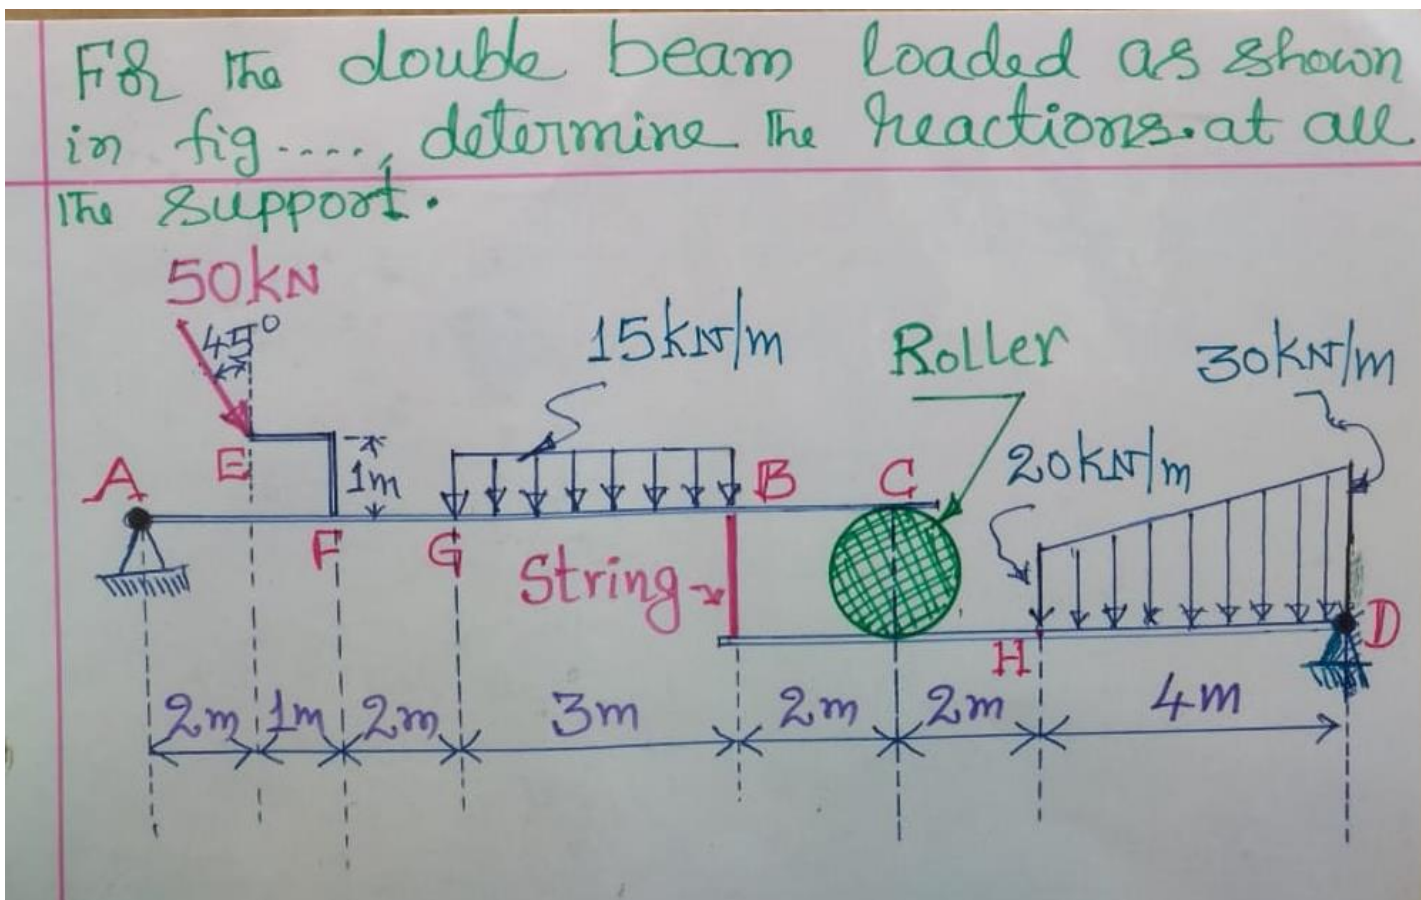 For the double beam loaded as shown
in fig...., determine the reactions at all
the support.
50kN
45°
15kN/m
Roller
30kN/m
A
E
1m
B
C
20kN/m
F
G
String
H
D
2m 1m 2m 3m 2m 2m 4m